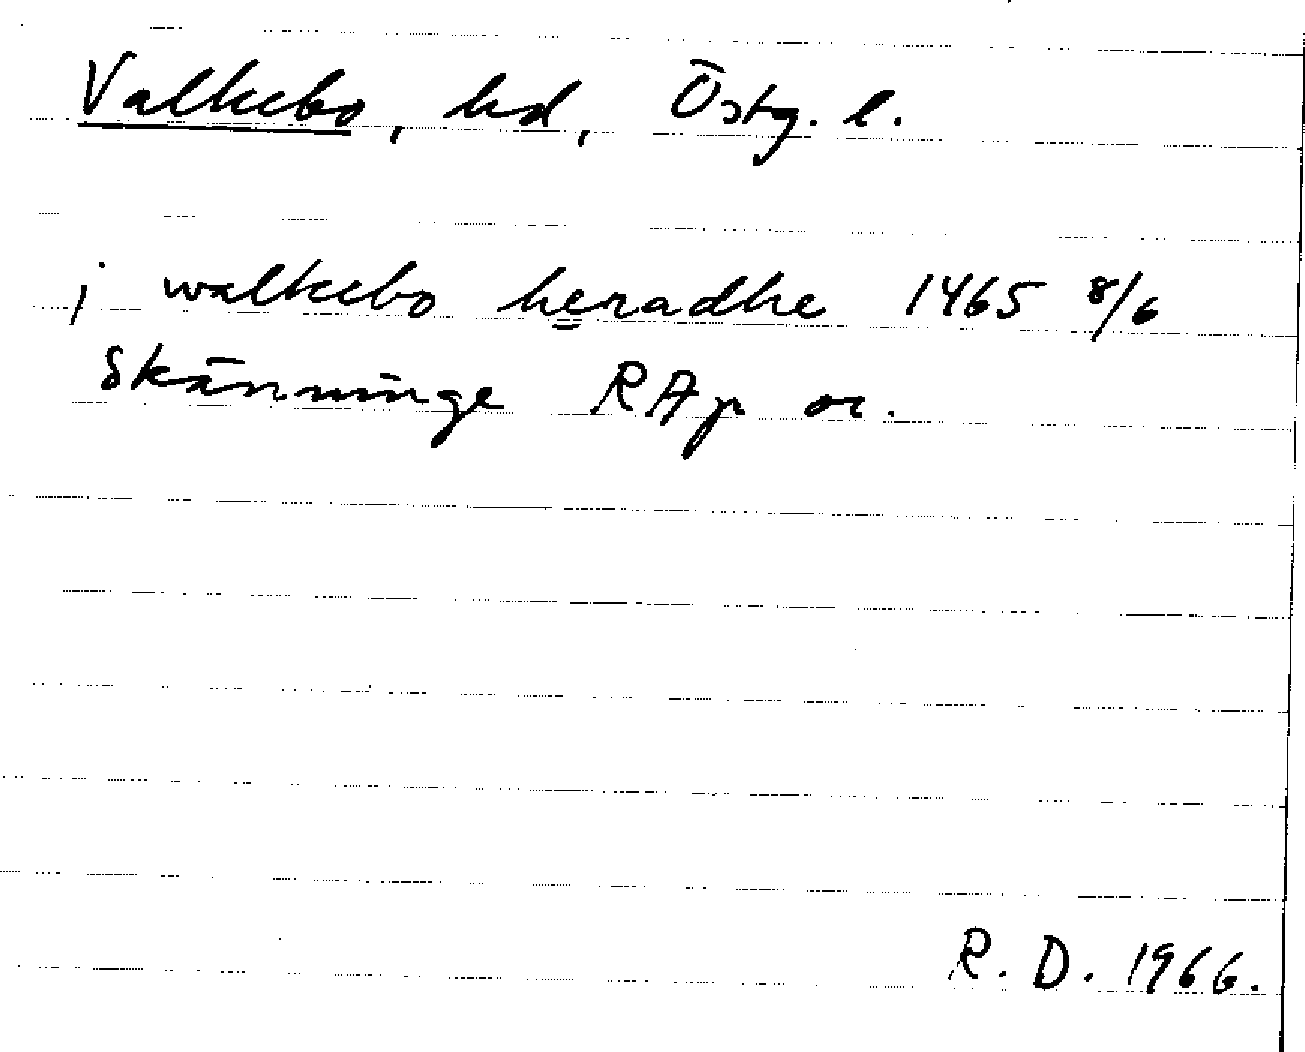 Valkebo, hd, Östg. l.
j walkebo heradhe 1465 8/6
Skänninge RAp or.
R. D. 1966.